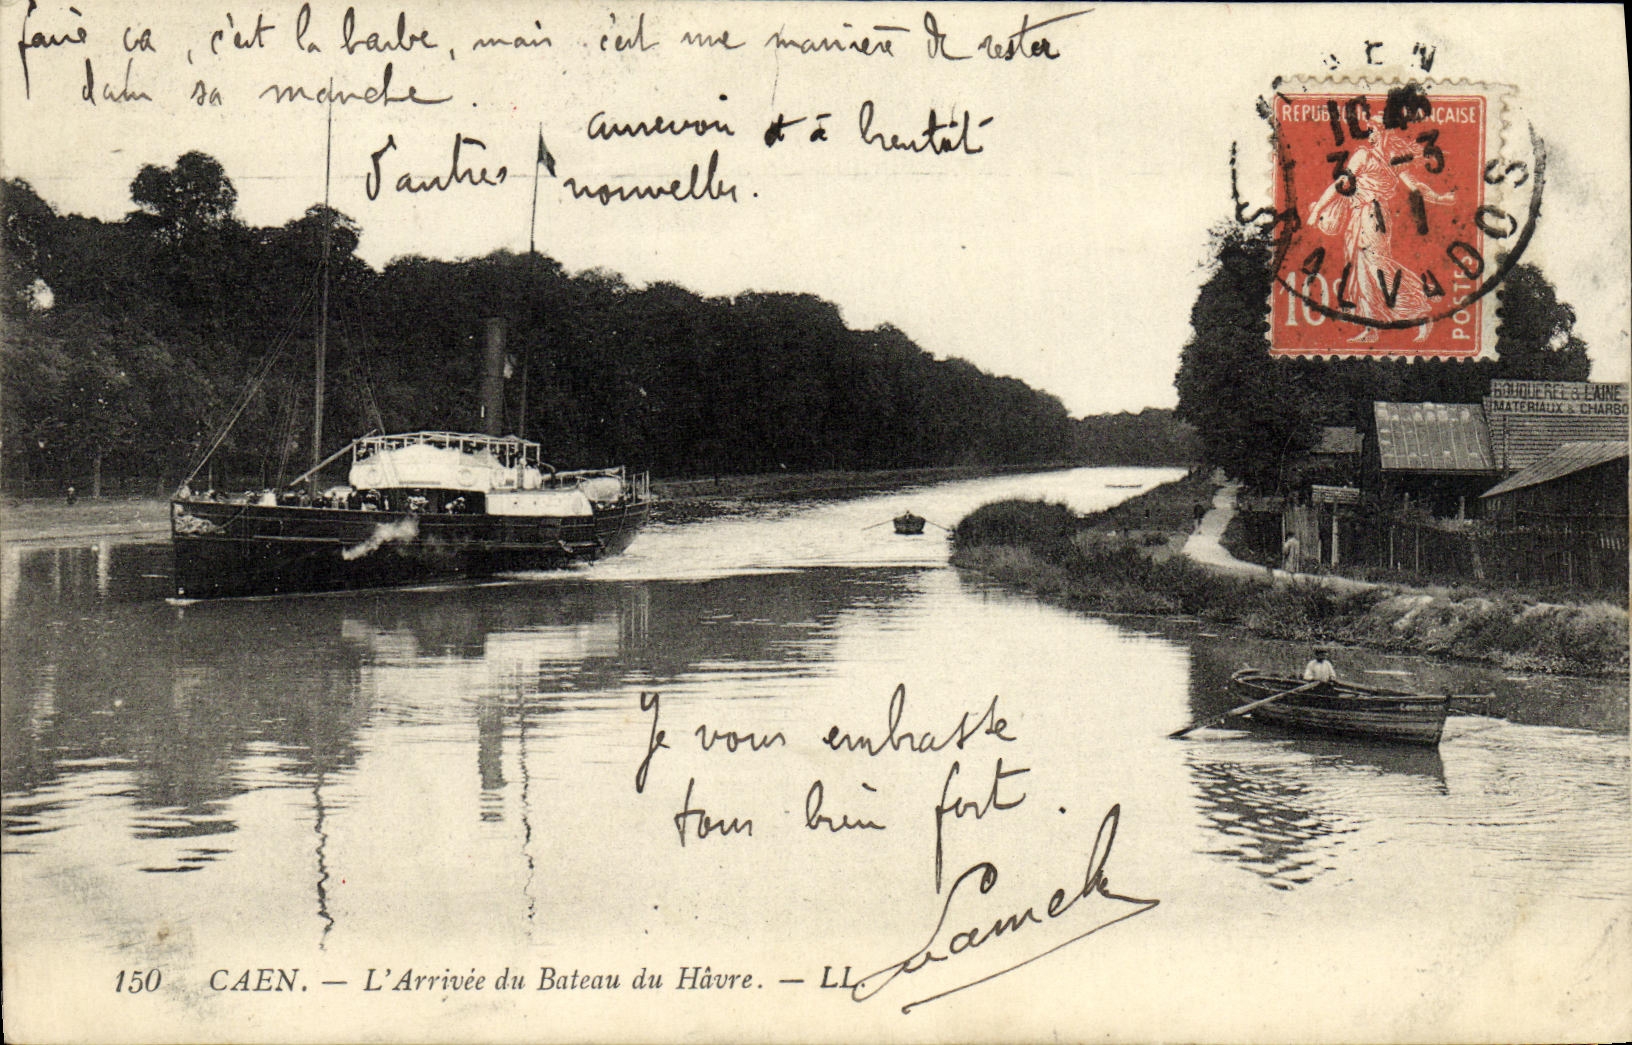 faire ça, c'est la barbe, mais c'est une manière de rester
dans sa manche.
aurevoir et à bientôt
d'autres nouvelles.
REPUBLIQUE FRANÇAISE
10c
POSTES
3 -3
11
CALVADOS
BOUQUEREL & LAINE
MATERIAUX & CHARBO
Je vous embrasse
tous bien fort.
Lamck
150 CAEN. — L'Arrivée du Bateau du Hâvre. — LL.